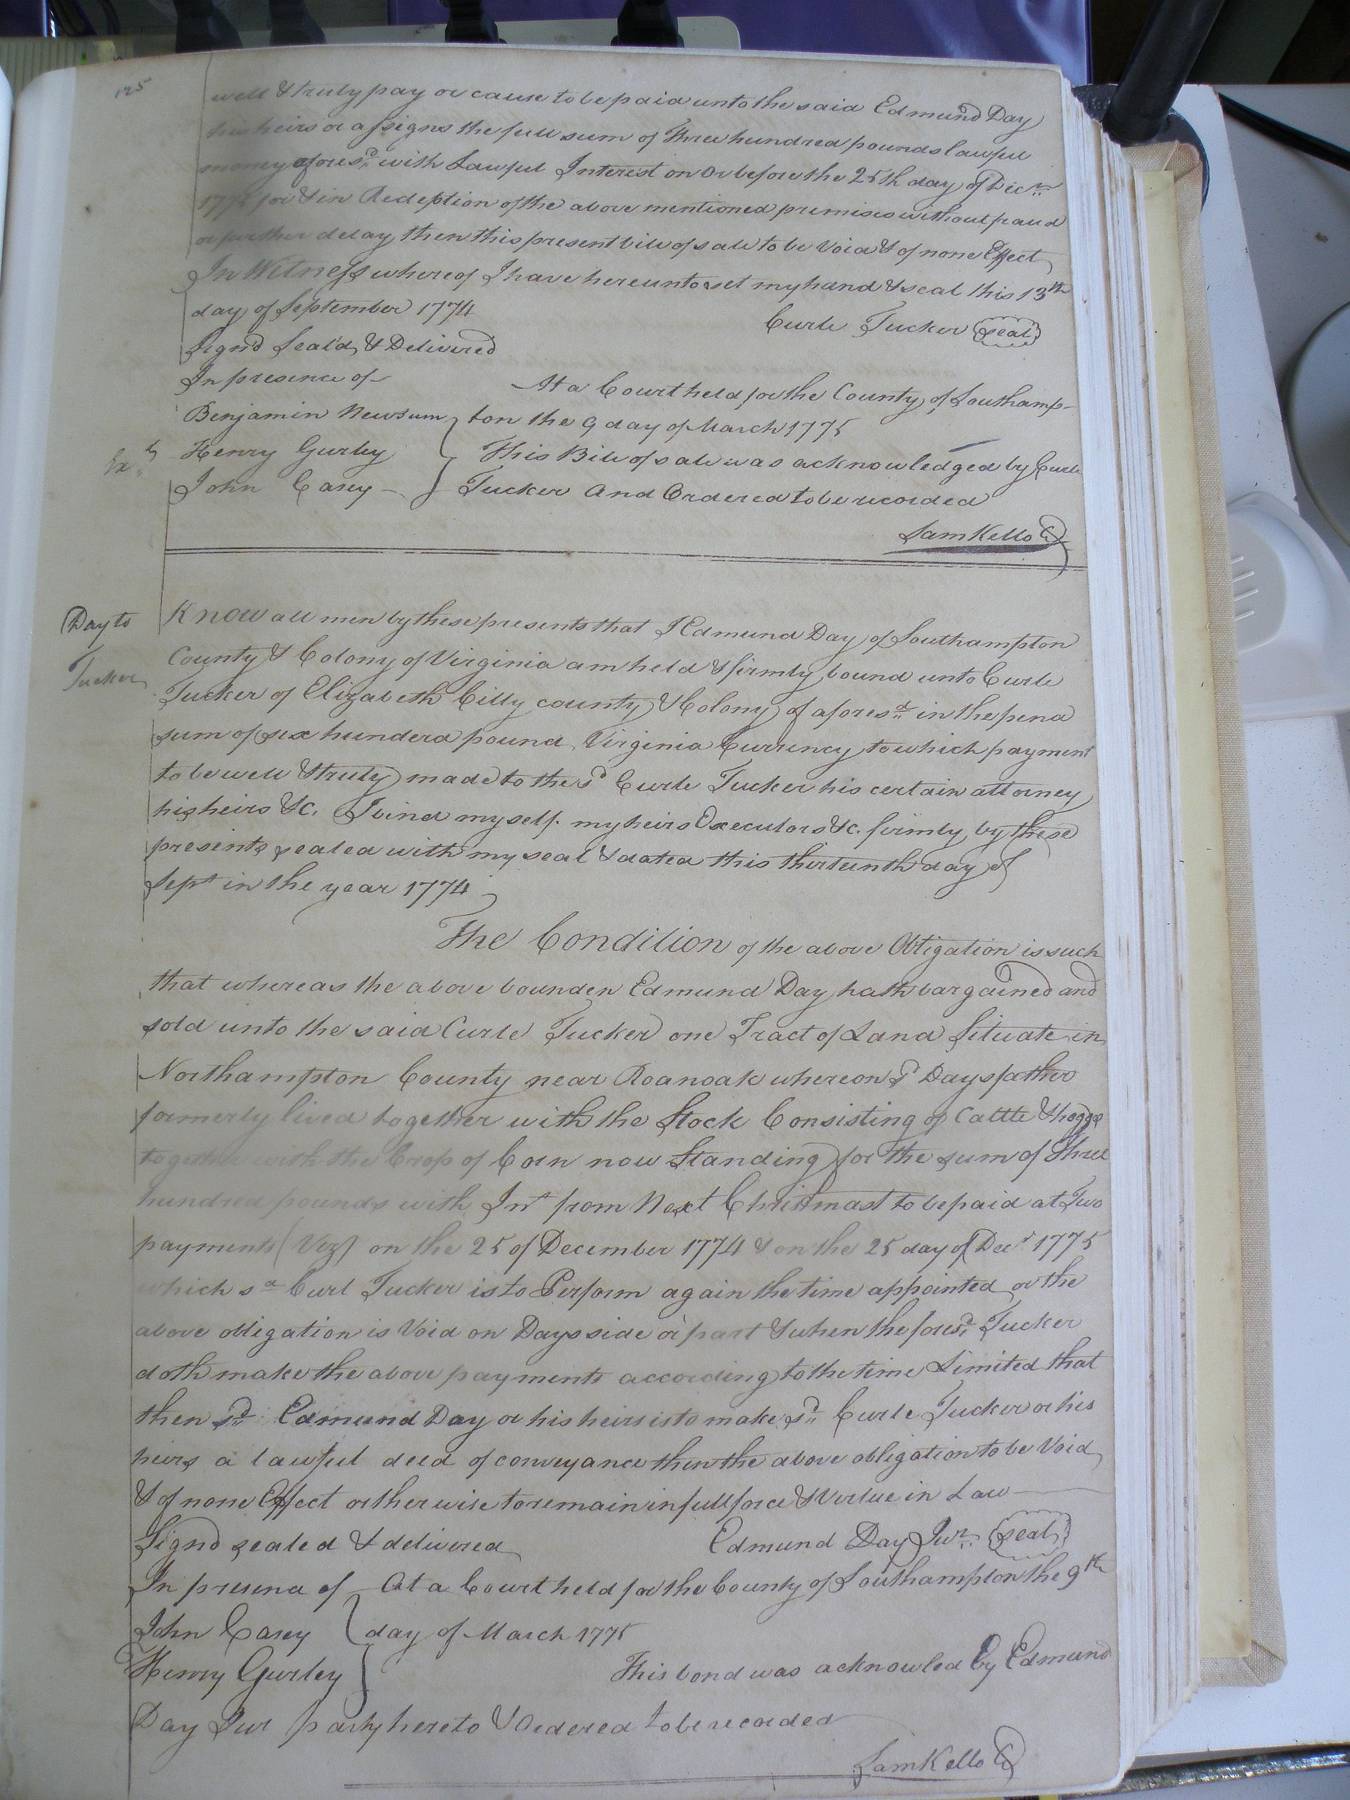 125
well & truly pay or cause to be paid unto the said Edmund Day
his heirs or assigns the full sum of Three hundred pounds lawful
money afores.d with Lawful Interest on or before the 25th day of Dec.r
1775 for & in Redeption of the above mentioned premises without fraud
or further delay then this present bill of sale to be Void & of none Effect
In Witness whereof I have hereunto set my hand & seal this 13th
day of September 1774
Curle Tucker (seal)
Sign'd Seal'd, & Delivered
In presence of
At a Court held for the County of Southamp-
Benjamin Newsum
ton the 9 day of March 1775
Henry Gurley
This Bill of sale was acknowledged by Curle
John Casey
Tucker and Ordered to be recorded
Sam Kello C
Day to
Tucker
Know all men by these presents that I Edmund Day of Southampton
County & Colony of Virginia am held & firmly bound unto Curle
Tucker of Elizabeth Citty county & Colony of afores.d in the penal
sum of six hunderd pound Virginia Currency to which payment
to be well & truly made to the s.d Curle Tucker his certain attorney
his heirs &c. I bind myself my heirs Executors &c. firmly by these
presents sealed with my seal & dated this thirteenth day of
Sept in the year 1774
The Condition of the above Obligation is such
that whereas the above bounden Edmund Day hath bargained and
sold unto the said Curle Tucker one Tract of Land Situate in
Northampton County near Roanoak whereon s.d Days father
formerly lived together with the Stock Consisting of Cattle & hoggs
together with the Crop of Corn now Standing for the sum of Three
hundred pounds with Int from Next Christmast to be paid at Two
payments (Viz) on the 25 of December 1774 & on the 25 day of Dec.r 1775
which s.d Curl Tucker is to Perform again the time appointed or the
above obligation is Void on Days side or part & when the fores.d Tucker
doth make the above payments according to the time Limited that
then s.d Edmund Day or his heirs is to make s.d Curle Tucker or his
heirs a lawful deed of conveyance then the above obligation to be Void
& of none Effect or therwise to remain in full force & Virtue in Law
Signd sealed & delivered
Edmund Day Jur. (seal)
In presence of
At a Court held for the County of Southampton the 9th
John Casey
day of March 1775
Henry Gurley
This bond was acknowled by Edmund
Day Jur party hereto & Ordered to be recorded
Sam Kello C